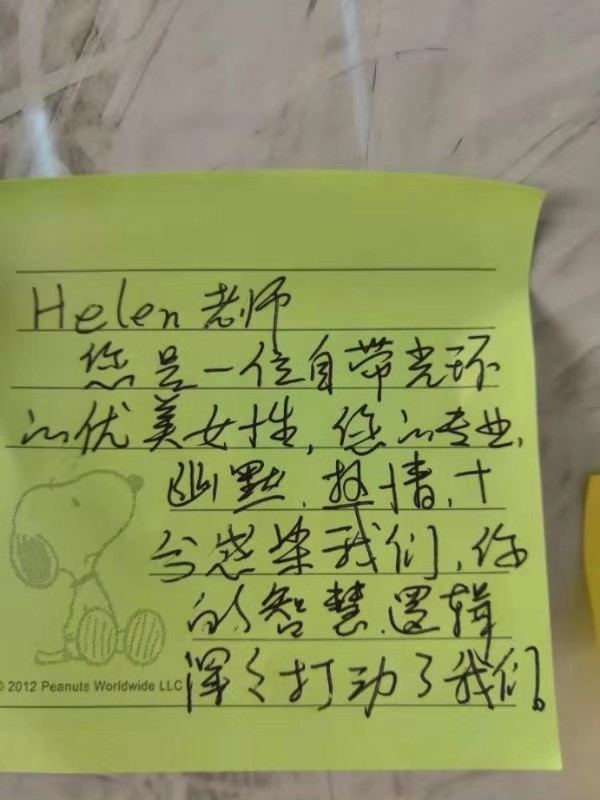 Helen 老师
您是一位自带光环
的优美女性，您的专业、
幽默、热情、十
分感染我们，你
的智慧、逻辑
深々打动了我们。
© 2012 Peanuts Worldwide LLC